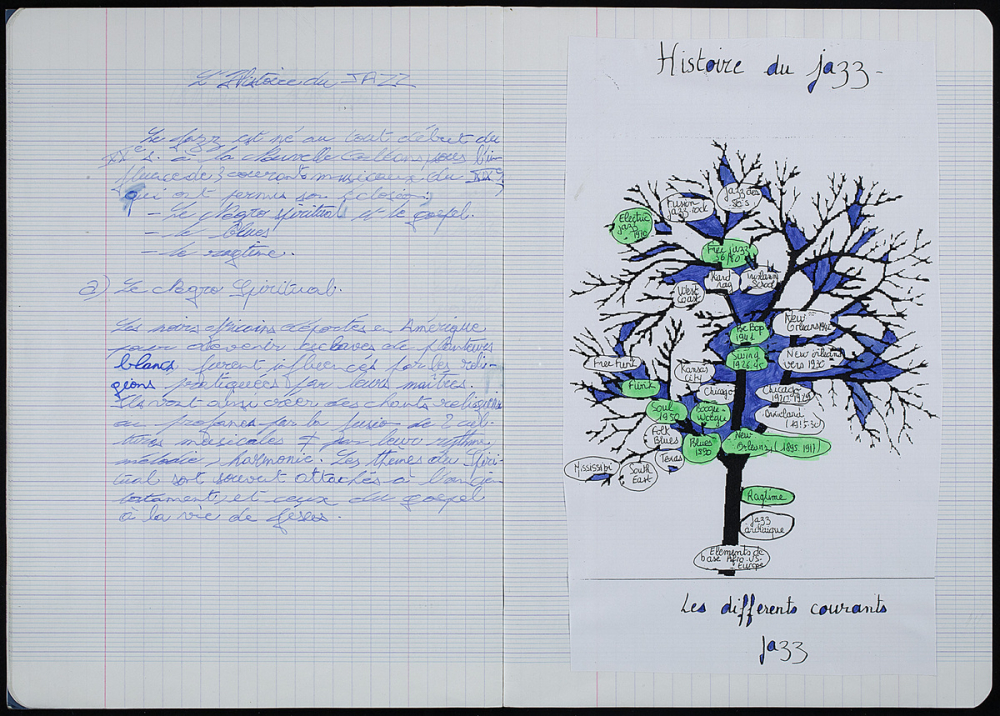 L'Histoire du JAZZ
Le Jazz est né au tout début du
XXe s. à la Nouvelle Orléans, sous l'in-
fluence de 3 courants musicaux du XIXe s
qui ont permis son éclosion :
- Le Négro spirituel et le gospel.
- le blues
- le ragtime.
a) Le Négro Spiritual.
Les noirs africains déportés en Amérique
pour devenir esclaves de planteurs
blancs furent influencés par les reli-
gions pratiquées par leurs maîtres.
Ils vont ainsi créer des chants religieux
ou profanes par la fusion de 2 cul-
tures musicales ≠ par leur rythme,
mélodie, harmonie. Les thèmes du Spiri-
tual sont souvent attachés à l'ancien
testament et ceux du gospel
à la vie de Jésus.
Histoire du jazz
Jazz des
80's
Fusion
jazz-rock
Electric
jazz
1970
Free jazz
Hard
West
Coast
Be Bop
1942
New
Orleans
Swing
New orleans
vers 1930
Free Funk
Kansas
City
Funk
Chicago
Chicago
Soul
1950
Boogie-
Woogie
Dixieland
Folk
Blues
Blues
1890
New
Orleans (1895.1917)
Texas
Mississibi
South
East
Ragtime
Jazz
archaïque
Elements de
base Afro-US-
Europe
Les différents courants
jazz